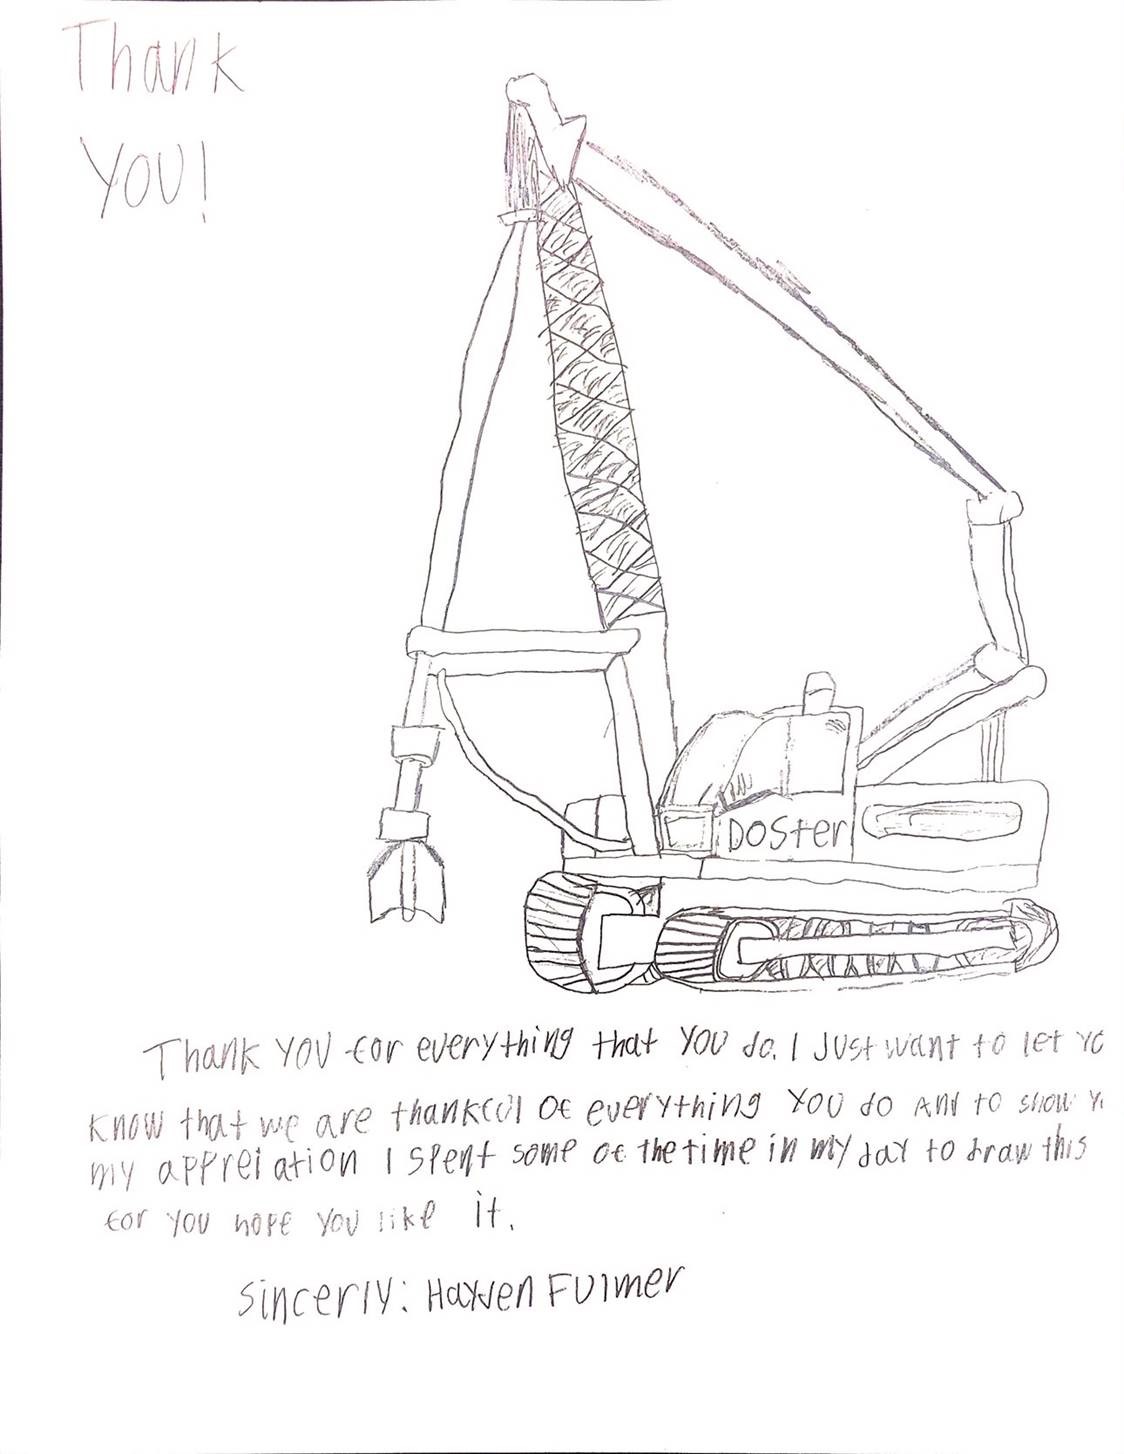 Thank
YOU!
DOSter
Thank YOU for everything that YOU do. I Just want to let yo
know that we are thankful of everything YOU do AND to show y
my appreiation I spent some of the time in my day to draw this
for you hope you like it.
Sincerly: Hayden FUlmer